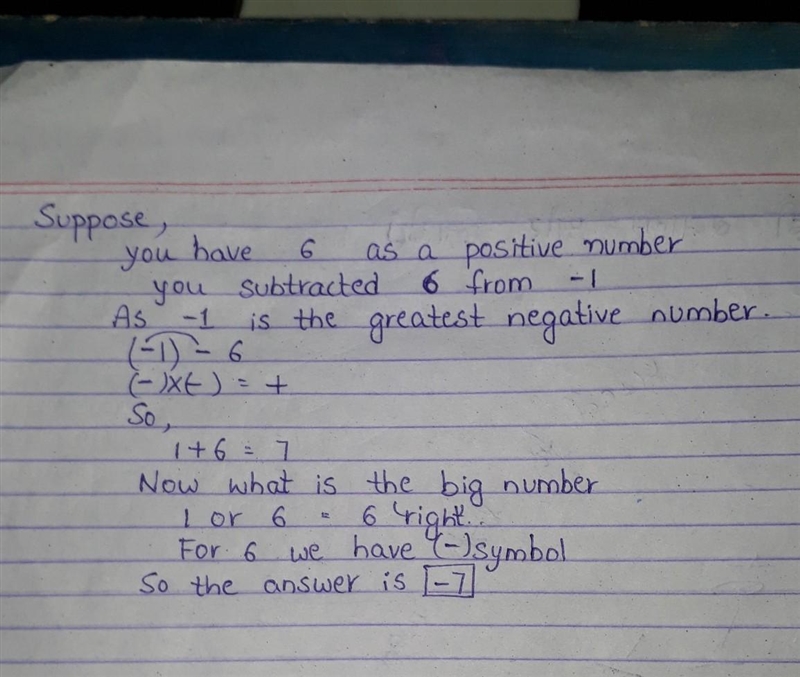 Suppose,
you have 6 as a positive number
you subtracted 6 from -1
As -1 is the greatest negative number.
(-1) - 6
(-)x(-) = +
So,
1 + 6 = 7
Now what is the big number
1 or 6 = 6 right..
For 6 we have (-) symbol
So the answer is -7